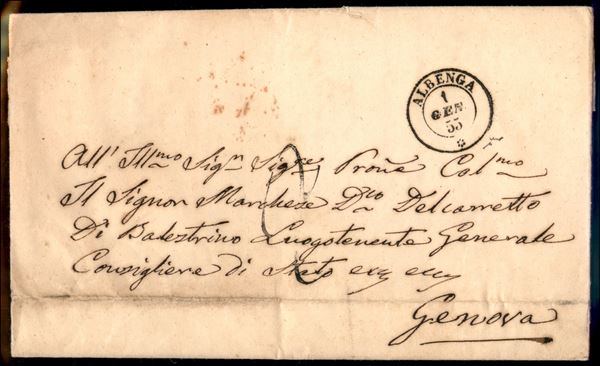 ALBENGA
1
GEN
55
All' Ill.mo Sig.r Sig.re Prone Col.mo
Il Signor Marchese D.co Delcarretto
Di Balestrino Luogotenente Generale
Consigliere di Stato
Genova